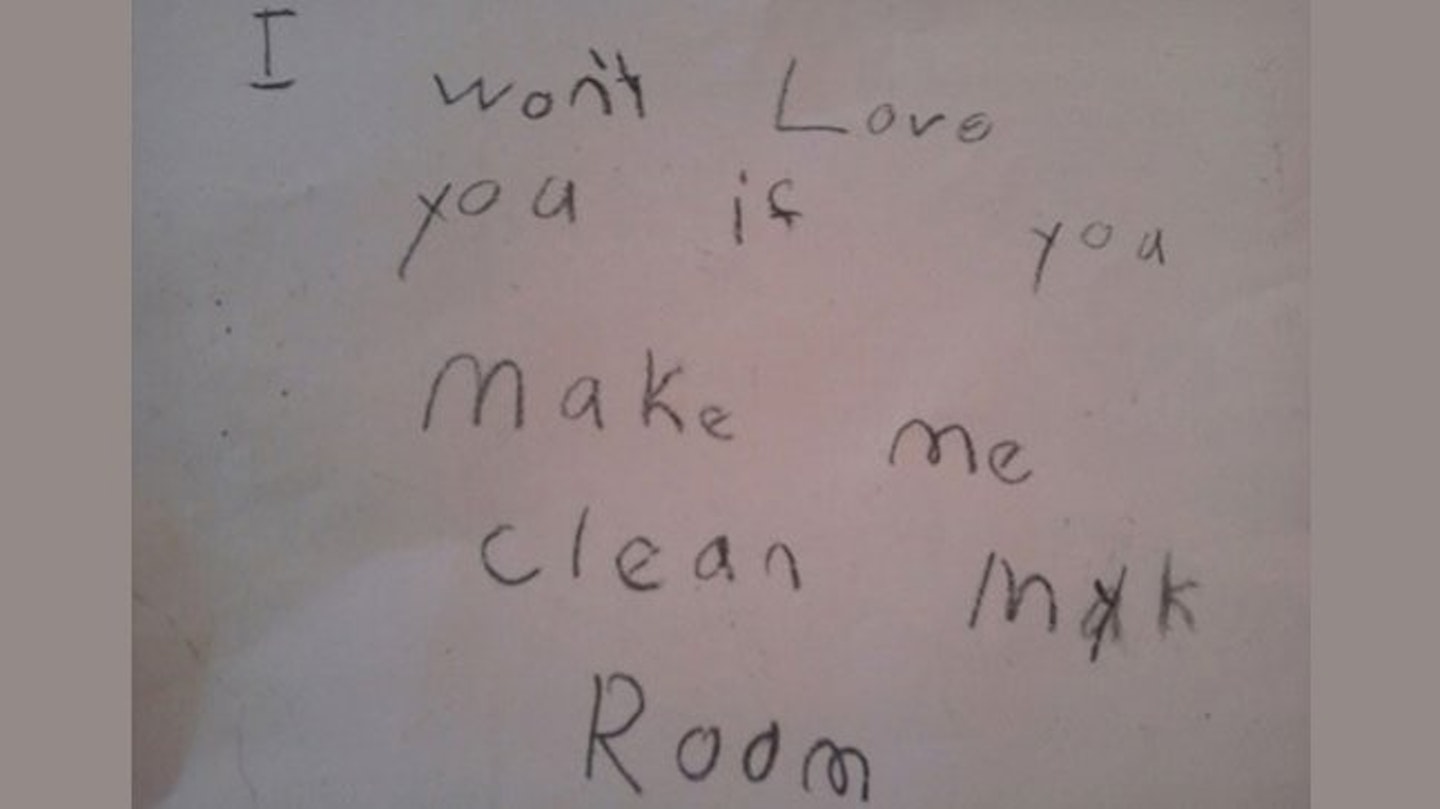 I won't Love
you if you
Make me
clean Myk
Room